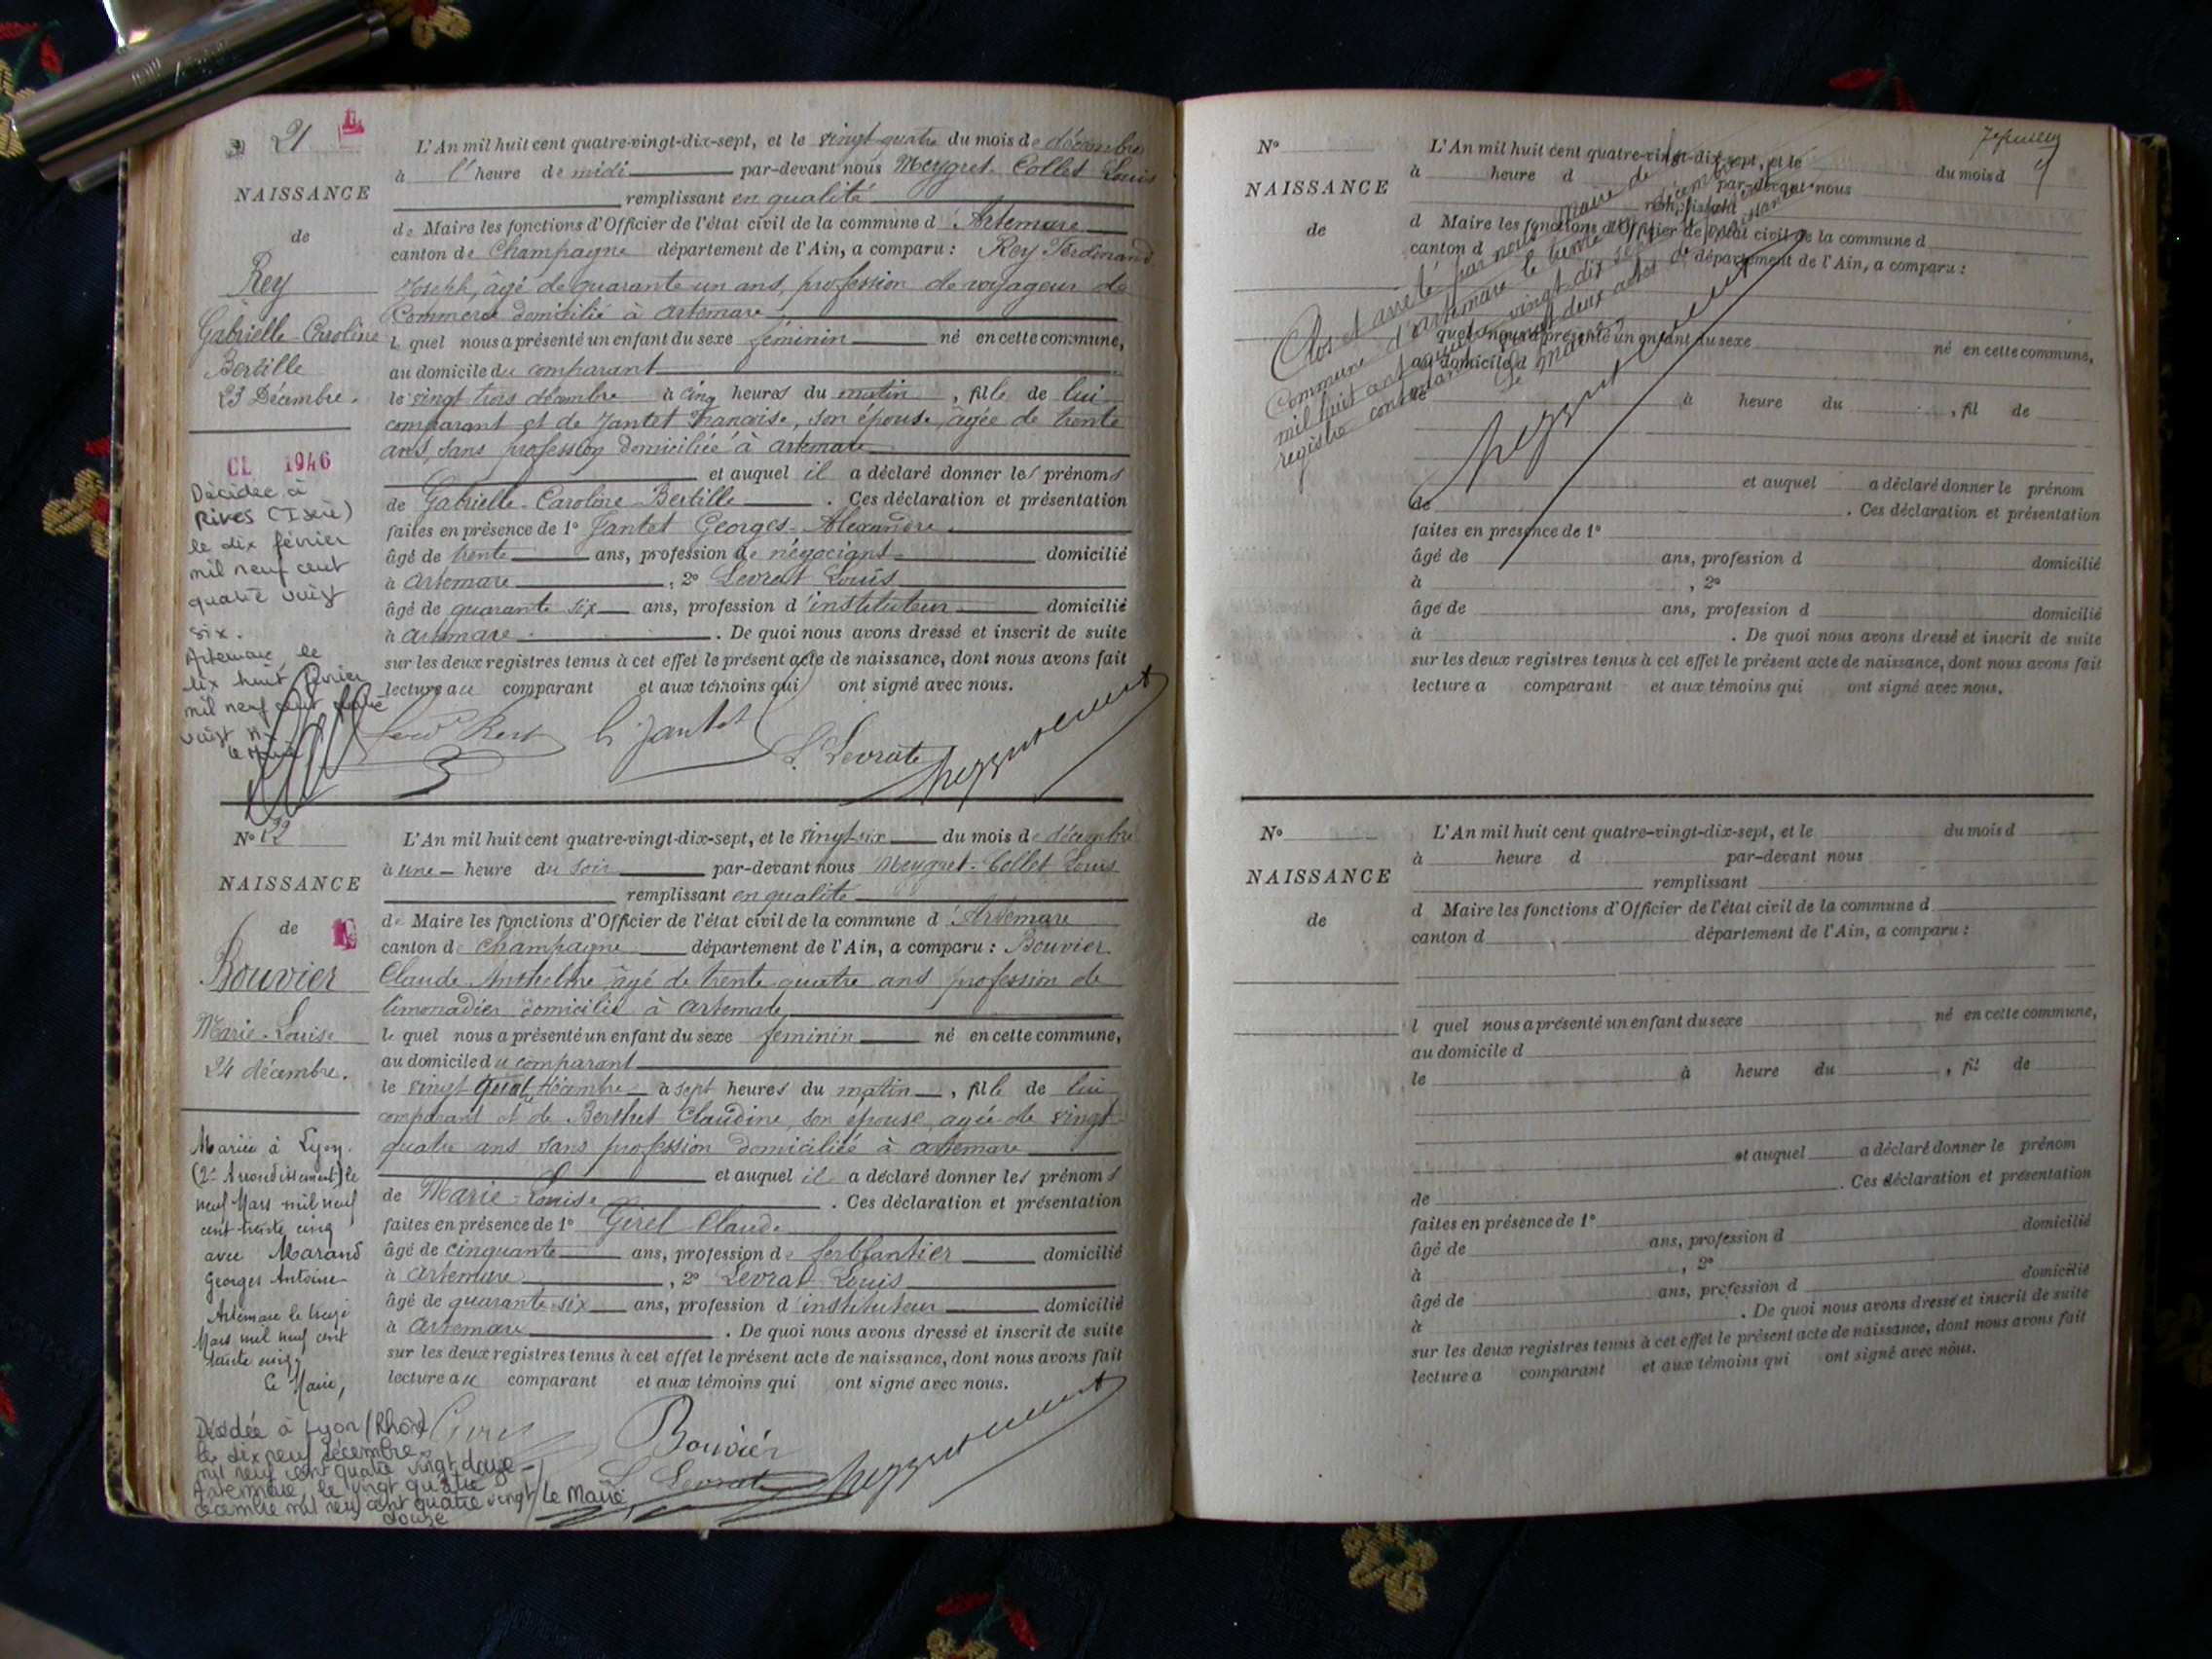 N° 21
NAISSANCE
de
Rey
Gabrielle-Caroline
Bertille
23 Décembre.
CL 1946
Décédée à
Rives (Isère)
le dix février
mil neuf cent
quatre vingt
six.
Artemare, le
dix huit février
mil neuf cent quatre
vingt six
Le Maire
L'An mil huit cent quatre-vingt-dix-sept, et le vingt quatre du mois de décembre
à l'heure de midi par-devant nous Meygret-Collet Louis
remplissant en qualité
de Maire les fonctions d'Officier de l'état civil de la commune d'Artemare
canton de Champagne département de l'Ain, a comparu : Rey Ferdinand
Joseph, âgé de quarante un ans, profession de voyageur de
Commerce domicilié à artemare
lequel nous a présenté un enfant du sexe féminin né en cette commune,
au domicile du comparant
le vingt trois décembre à cinq heures du matin, fille de lui
comparant et de Jantet Françoise, son épouse, agée de trente
ans, sans profession domiciliée à artemare
et auquel il a déclaré donner les prénoms
de Gabrielle-Caroline-Bertille. Ces déclaration et présentation
faites en présence de 1° Jantet Georges-Alexandre
âgé de trente ans, profession de négociant domicilié
à artemare, 2° Levrat Louis
âgé de quarante six ans, profession d'instituteur domicilié
à artemare. De quoi nous avons dressé et inscrit de suite
sur les deux registres tenus à cet effet le présent acte de naissance, dont nous avons fait
lecture au comparant et aux témoins qui ont signé avec nous.
G Jantet
L. Levrat
N° 22
NAISSANCE
de
Bouvier
Marie-Louise
24 décembre.
Mariée à Lyon
(2e Arrondissement) le
neuf Mars mil neuf
cent trente cinq
avec Marand
Georges Antoine
Artemare le treize
Mars mil neuf cent
trente cinq.
Le Maire,
Décédée à Lyon (Rhône)
le dix neuf décembre
mil neuf cent quatre vingt douze
Artemare, le vingt quatre
décembre mil neuf cent quatre vingt
douze
Le Maire
L'An mil huit cent quatre-vingt-dix-sept, et le vingt six du mois de décembre
à une heure du soir par-devant nous Meygret-Collet Louis
remplissant en qualité
de Maire les fonctions d'Officier de l'état civil de la commune d'Artemare
canton de Champagne département de l'Ain, a comparu : Bouvier
Claude Anthelme âgé de trente quatre ans profession de
limonadier domicilié à artemare
lequel nous a présenté un enfant du sexe féminin né en cette commune,
au domicile du comparant
le vingt quatre décembre à sept heures du matin, fille de lui
comparant et de Berthet Claudine, son épouse, agée de vingt
quatre ans sans profession domiciliée à artemare
et auquel il a déclaré donner les prénoms
de Marie-Louise. Ces déclaration et présentation
faites en présence de 1° Girel Claude
âgé de cinquante ans, profession de ferblantier domicilié
à artemare, 2° Levrat Louis
âgé de quarante-six ans, profession d'instituteur domicilié
à artemare. De quoi nous avons dressé et inscrit de suite
sur les deux registres tenus à cet effet le présent acte de naissance, dont nous avons fait
lecture au comparant et aux témoins qui ont signé avec nous.
Girel
Bouvier
L. Levrat
N°
NAISSANCE
de
L'An mil huit cent quatre-vingt-dix-sept, et le du mois d
à heure d par-devant nous
remplissant
d Maire les fonctions d'Officier de l'état civil de la commune d
canton d département de l'Ain, a comparu :
l quel nous a présenté un enfant du sexe né en cette commune,
au domicile d
à heure du , fil de
et auquel a déclaré donner le prénom
de . Ces déclaration et présentation
faites en présence de 1°
âgé de ans, profession d domicilié
à , 2°
âgé de ans, profession d domicilié
à . De quoi nous avons dressé et inscrit de suite
sur les deux registres tenus à cet effet le présent acte de naissance, dont nous avons fait
lecture a comparant et aux témoins qui ont signé avec nous.
Clos et arrêté par nous Maire de la
Commune d'artemare le trente un décembre
mil huit cent quatre vingt dix sept le présent
registre contenant vingt deux actes de naissance
Le Maire
N°
NAISSANCE
de
L'An mil huit cent quatre-vingt-dix-sept, et le du mois d
à heure d par-devant nous
remplissant
d Maire les fonctions d'Officier de l'état civil de la commune d
canton d département de l'Ain, a comparu :
l quel nous a présenté un enfant du sexe né en cette commune,
au domicile d
le à heure du , fil de
et auquel a déclaré donner le prénom
de . Ces déclaration et présentation
faites en présence de 1°
âgé de ans, profession d domicilié
à , 2°
âgé de ans, profession d domicilié
à . De quoi nous avons dressé et inscrit de suite
sur les deux registres tenus à cet effet le présent acte de naissance, dont nous avons fait
lecture a comparant et aux témoins qui ont signé avec nous.